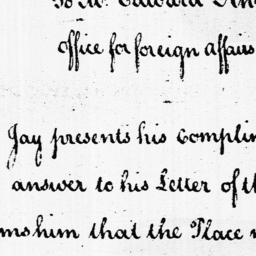 To Mr. Edward
Office for foreign affairs
Jay presents his Complim
answer to his Letter of th
ms him that the Place